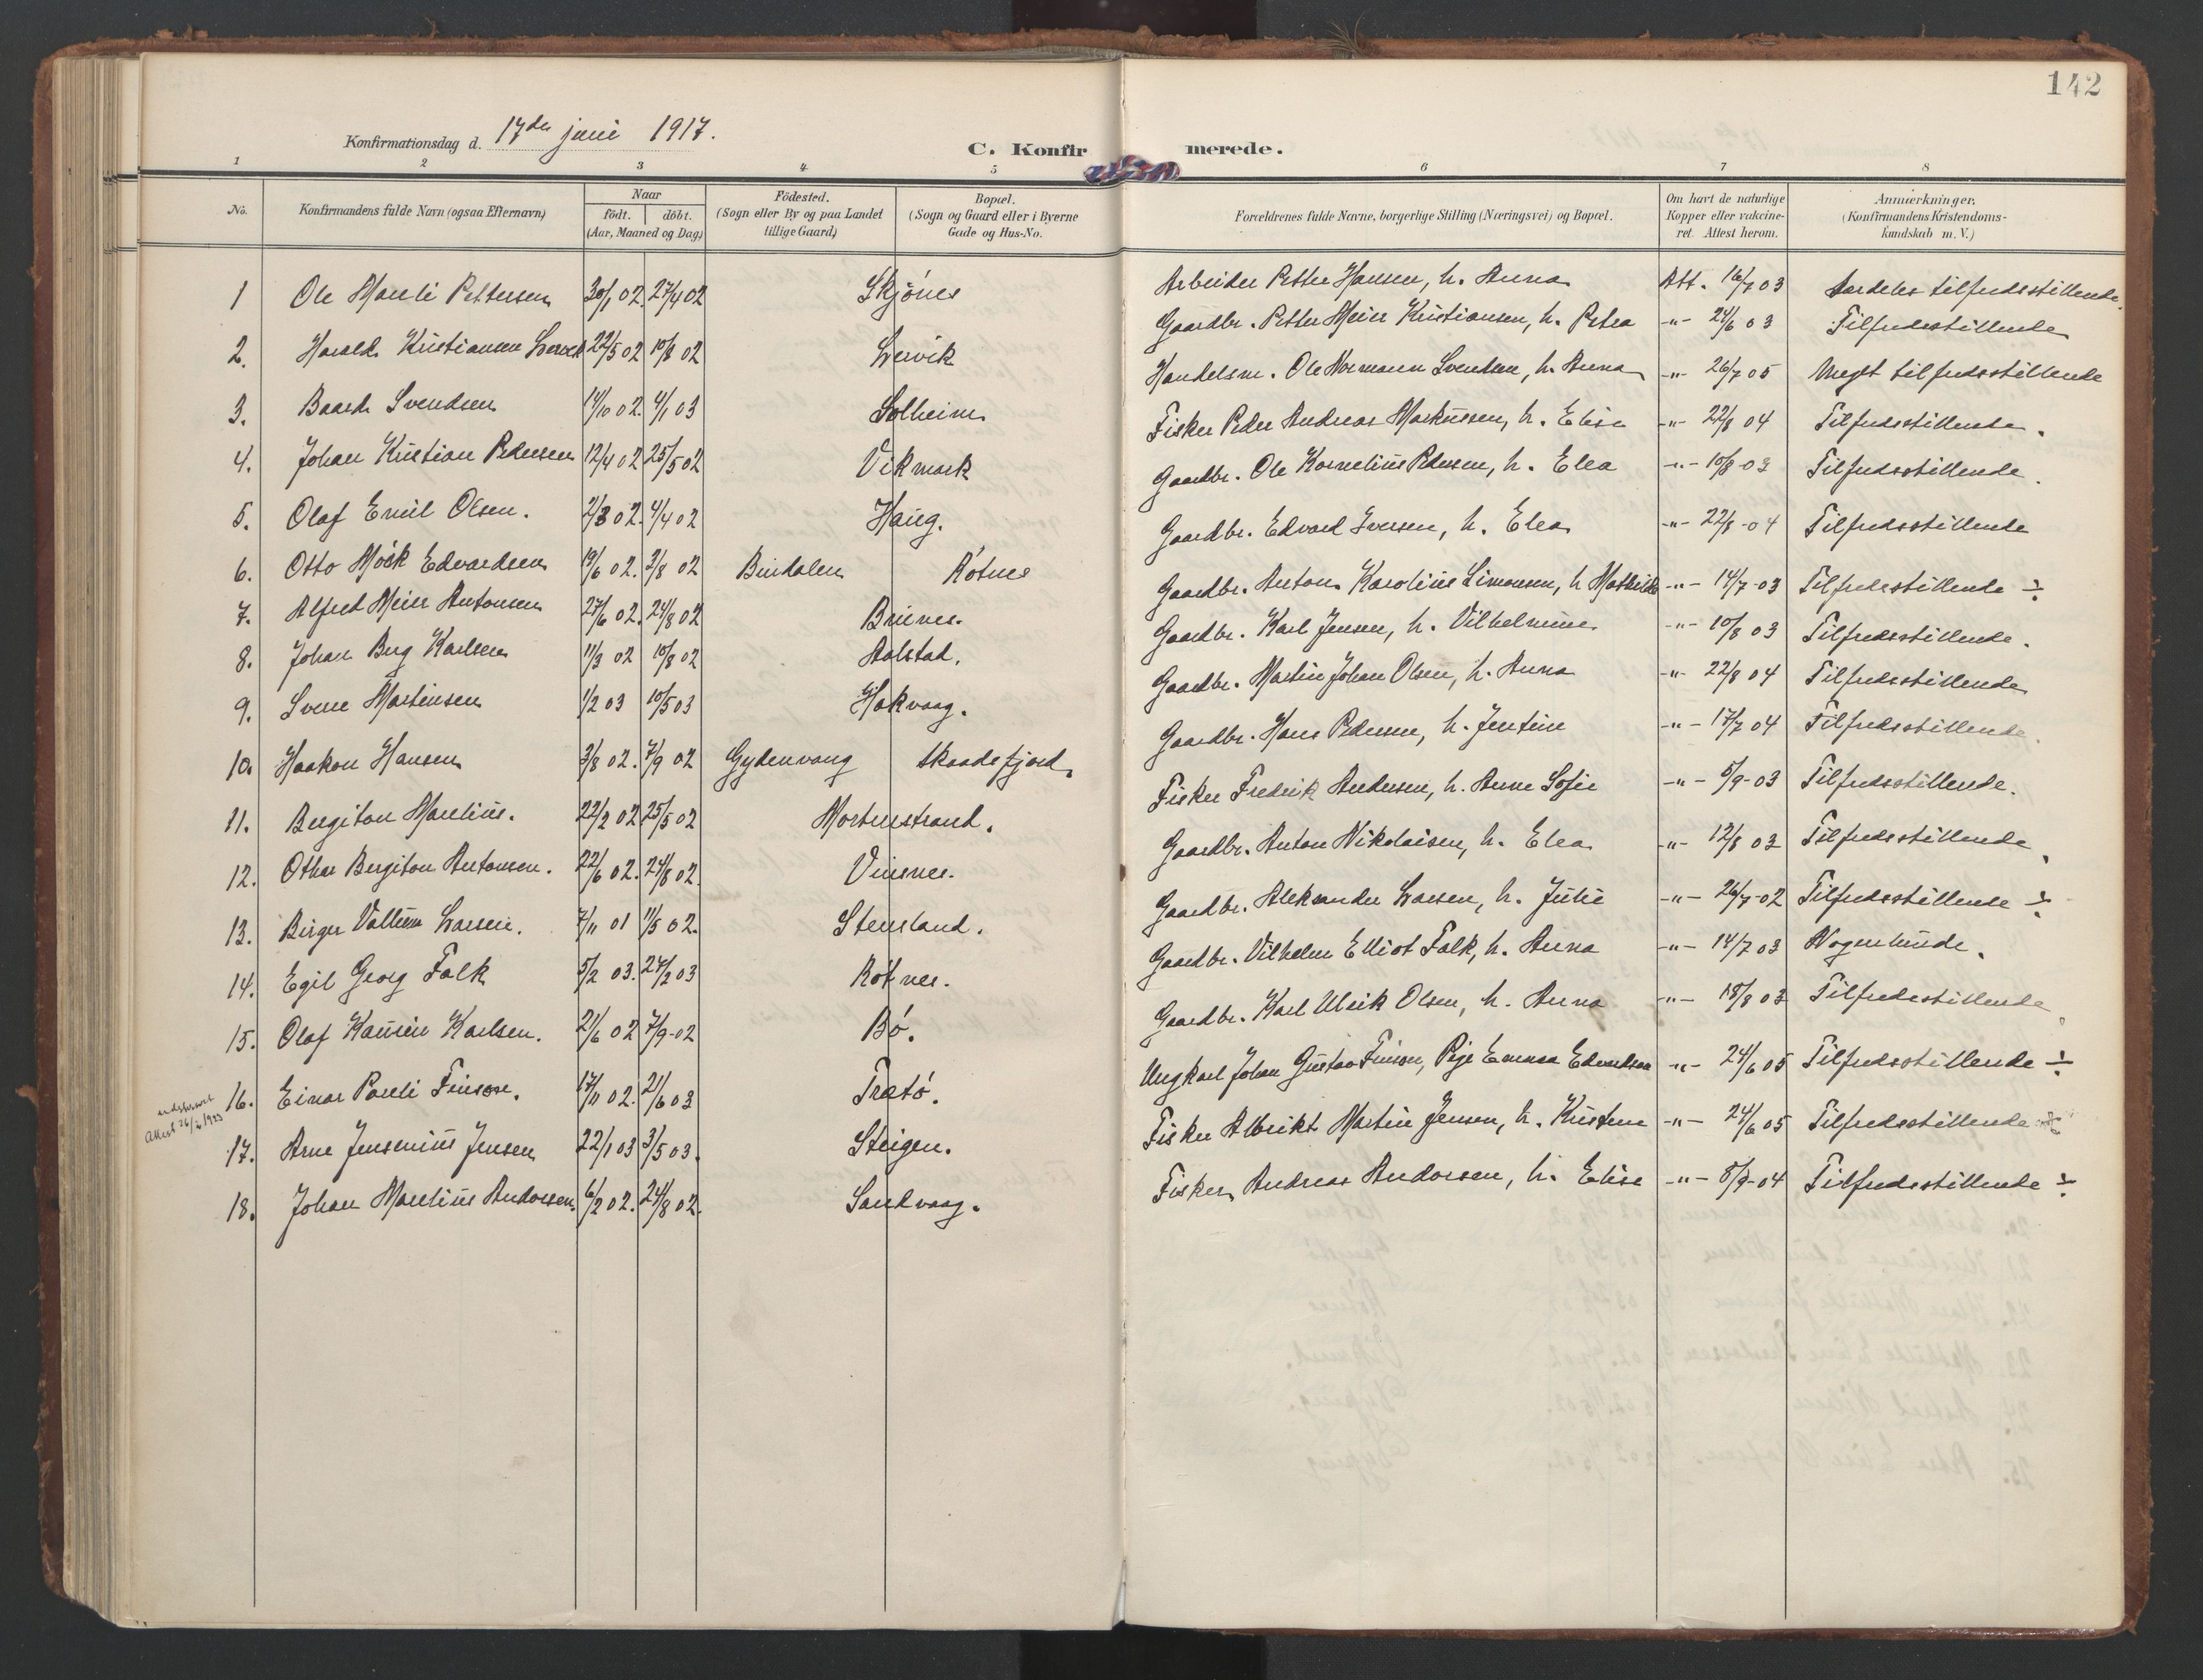 142
Konfirmationsdag d. 17de juni 1917.
C. Konfirmerede.
1 2 3 4 5 6 7 8
No. | Konfirmandens fulde Navn (ogsaa Efternavn) | Naar födt. döbt. (Aar, Maaned og Dag) | Födested. (Sogn eller By og paa Landet tillige Gaard) | Bopæl. (Sogn og Gaard eller i Byerne Gade og Hus-No. | Forældrenes fulde Navne, borgerlige Stilling (Næringsvei) og Bopæl. | Om havt de naturlige Kopper eller vakcineret. Attest herom. | Anmærkninger. (Konfirmandens Kristendomskundskab m. V.)
1 Ole Marili Pettersen 30/1 02. 27/4 02 Skjönes Arbeider Petter Hansen, h. Anna Att. 16/7 03 Særdeles tilfredsstillende.
2. Harald Kristiansen Lervik 22/5 02 10/8 02 Lervik Gaardbr. Petter Meier Kristiansen, h. Petra -"- 24/6 03 Tilfredsstillende
3. Baard Svendsen 14/10 02. 4/1 03 Solheim Handelsm. Ole Normann Svendsen, h. Anna -"- 26/7 05 Meget tilfredsstillende
4. Johan Kristian Pedersen 12/4 02 25/5 02 Vikmark Fisker Peder Andreas Markussen, h. Elise -"- 22/8 04 Tilfredsstillende.
5. Olaf Emil Olsen. 2/3 02. 4/4 02 Haug. Gaardbr. Ole Kornelius Pedersen, h. Elea -"- 10/8-03 Tilfredsstillende.
6. Otto Mörk Edvardsen 19/6 02. 3/8 02 Bindalen Rötnes Gaardbr. Edvard Iversen, h. Elea -"- 22/8-04 Tilfredsstillende
7. Alfred Meier Antonsen 27/6 02. 24/8 02 Brienes. Gaardbr. Anton Karolius Simonsen, h Mathilde -"- 14/7-03 Tilfredsstillende ÷
8. Johan Berg Karlsen 11/3 02 10/8 02 Aalstad. Gaardbr. Karl Jensen, h. Vilhelmine -"- 10/8 03 Tilfredsstillende.
9. Sverre Martinsen 1/2 03 10/5 03 Hokvaag. Gaardbr. Martin Johan Olsen, h. Anna -"- 22/8 04 Tilfredsstillende
10. Haakon Hansen 3/8 02. 7/9 02 Gydenvang Skaadsfjord Gaardbr. Hans Pedersen, h. Jentine -"- 17/7 04 Tilfredsstillende.
11. Bergiton Marelius. 22/2 02 25/5 02 Mortenstrand. Fisker Fredrik Andersen, h. Anne Sofie -"- 5/9-03 Tilfredsstillende.
12. Othar Bergiton Antonsen. 22/6 02. 24/8 02. Vinsnes. Gaardbr. Anton Nikolaisen, h. Elea -"- 12/8 03 Tilfredsstillende
13. Birger Larsen. 7/11 01 11/5 02. Stensland. Gaardbr. Aleksander Larsen, h. Julie -"- 26/7-02 Tilfredsstillende ÷
14. Egil Georg Falk 5/2 03. 24/2 03 Rötnes. Gaardbr. Vilhelm Elliot Falk, h. Anna -"- 14/7 03 Nogenlunde.
15. Olaf Kausin Karlsen. 21/6 02 7/9-02 Bö. Gaardbr. Karl Ulrik Olsen, h. Anna -"- 18/8 03 Tilfredsstillende
16. Einar Pareli Finson. 17/11 02. 21/6 03 Trætö. Ungkarl Johan Gustav Finson, Pige Emma Edvardsen -"- 24/6 05 Tilfredsstillende ÷
Attest 26/2 1923
17. Arne Jensenius Jensen 22/1 03 3/5 03. Steigen. Fisker Albrikt Martin Jensen, h. Kristine -"- 24/6 05 Tilfredsstillende ÷
18. Johan Marelius Andorsen. 6/2 02. 24/8 02. Sandvaag. Fisker Andreas Andorsen, h. Elise -"- 8/9-04 Tilfredsstillende ÷